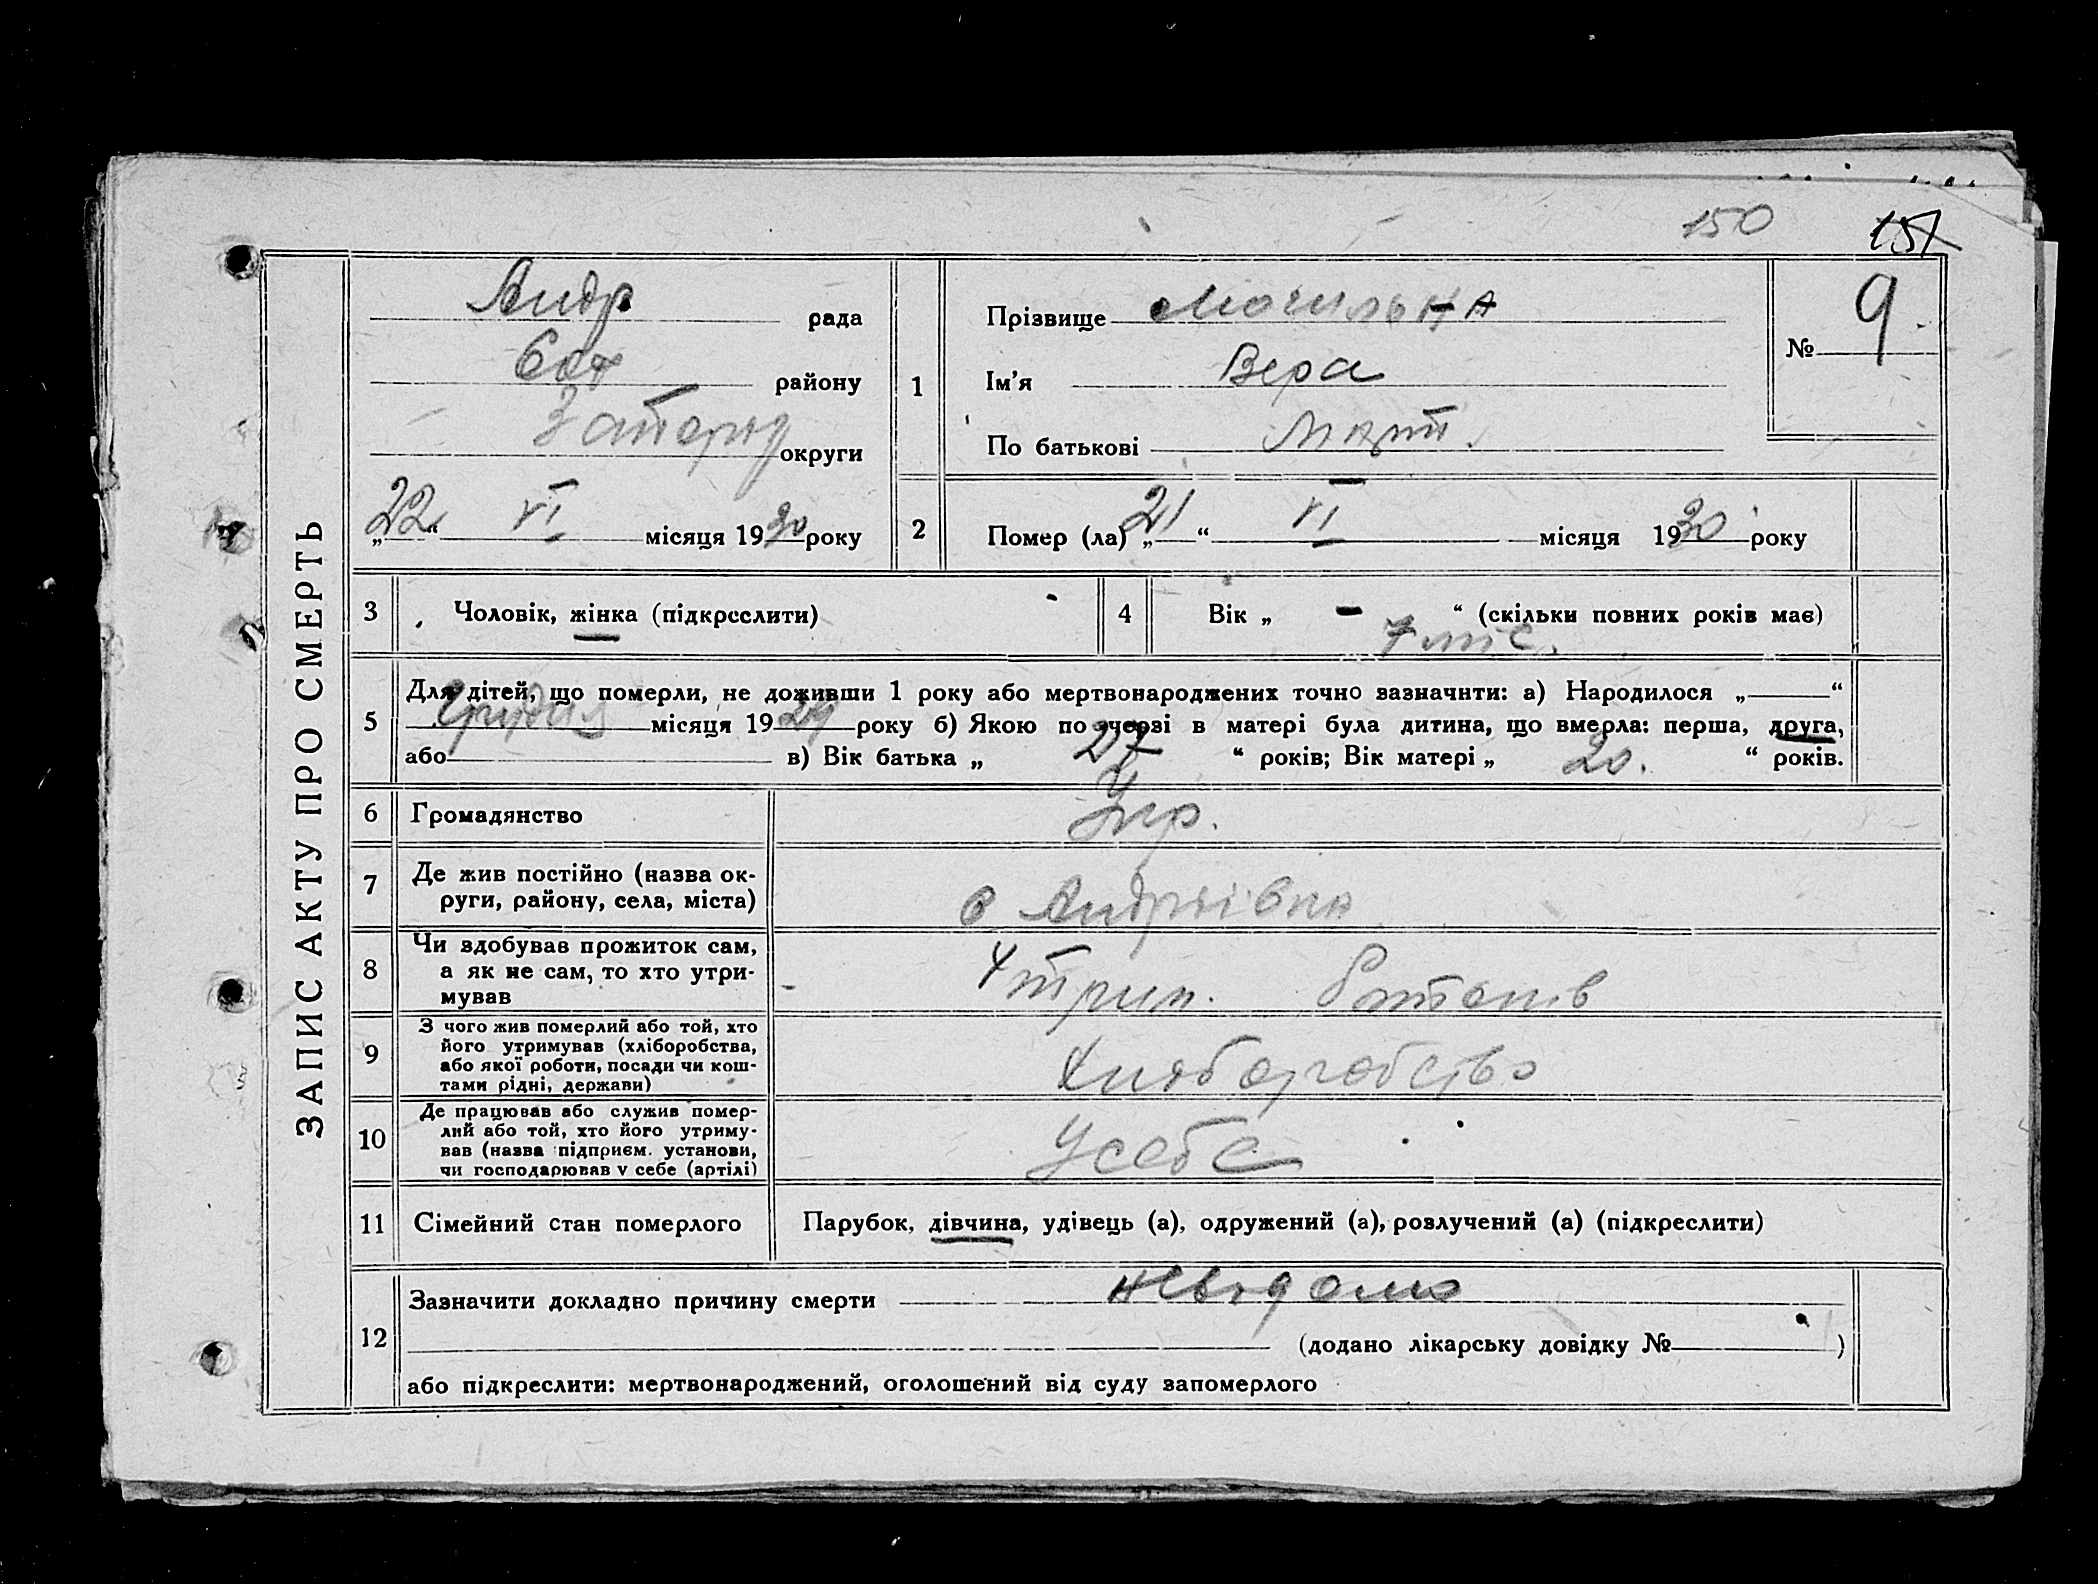 150 151
ЗАПИС АКТУ ПРО СМЕРТЬ
Андр рада
района
Запоріж округи
„22“ VI місяця 1930 року
1
Прізвище Могильна
Ім'я Вера
По батькові Март.
№ 9
2 Помер (ла) „21“ VI місяця 1930 року
3 Чоловік, жінка (підкреслити)
4 Вік „ - “ (скільки повних років має)
7 міс.
5 Для дітей, що померли, не доживши 1 року або мертвонароджених точно зазначити: а) Народилося „ “
Грудня місяця 1929 року б) Якою по черзі в матері була дитина, що вмерла: перша, друга,
або в) Вік батька „ 27 “ років; Вік матері „ 20. “ років.
6 Громадянство Укр.
7 Де жив постійно (назва ок-
руги, району, села, міста) с Андріівка
8 Чи здобував прожиток сам,
а як не сам, то хто утри-
мував Утрим. батьків
9 З чого жив померлий або той, хто
його утримував (хліборобства,
або якої роботи, посади чи кош-
тами рідні, держави) Хліборобство
10 Де працював або служив помер-
лий або той, хто його утриму-
вав (назва підприєм. установи,
чи господарював у себе (артілі) У себе
11 Сімейний стан померлого Парубок, дівчина, удівець (а), одружений (а), розлучений (а) (підкреслити)
12 Зазначити докладно причину смерти невідомо
(додано лікарську довідку № )
або підкреслити: мертвонароджений, оголошений від суду запомерлого